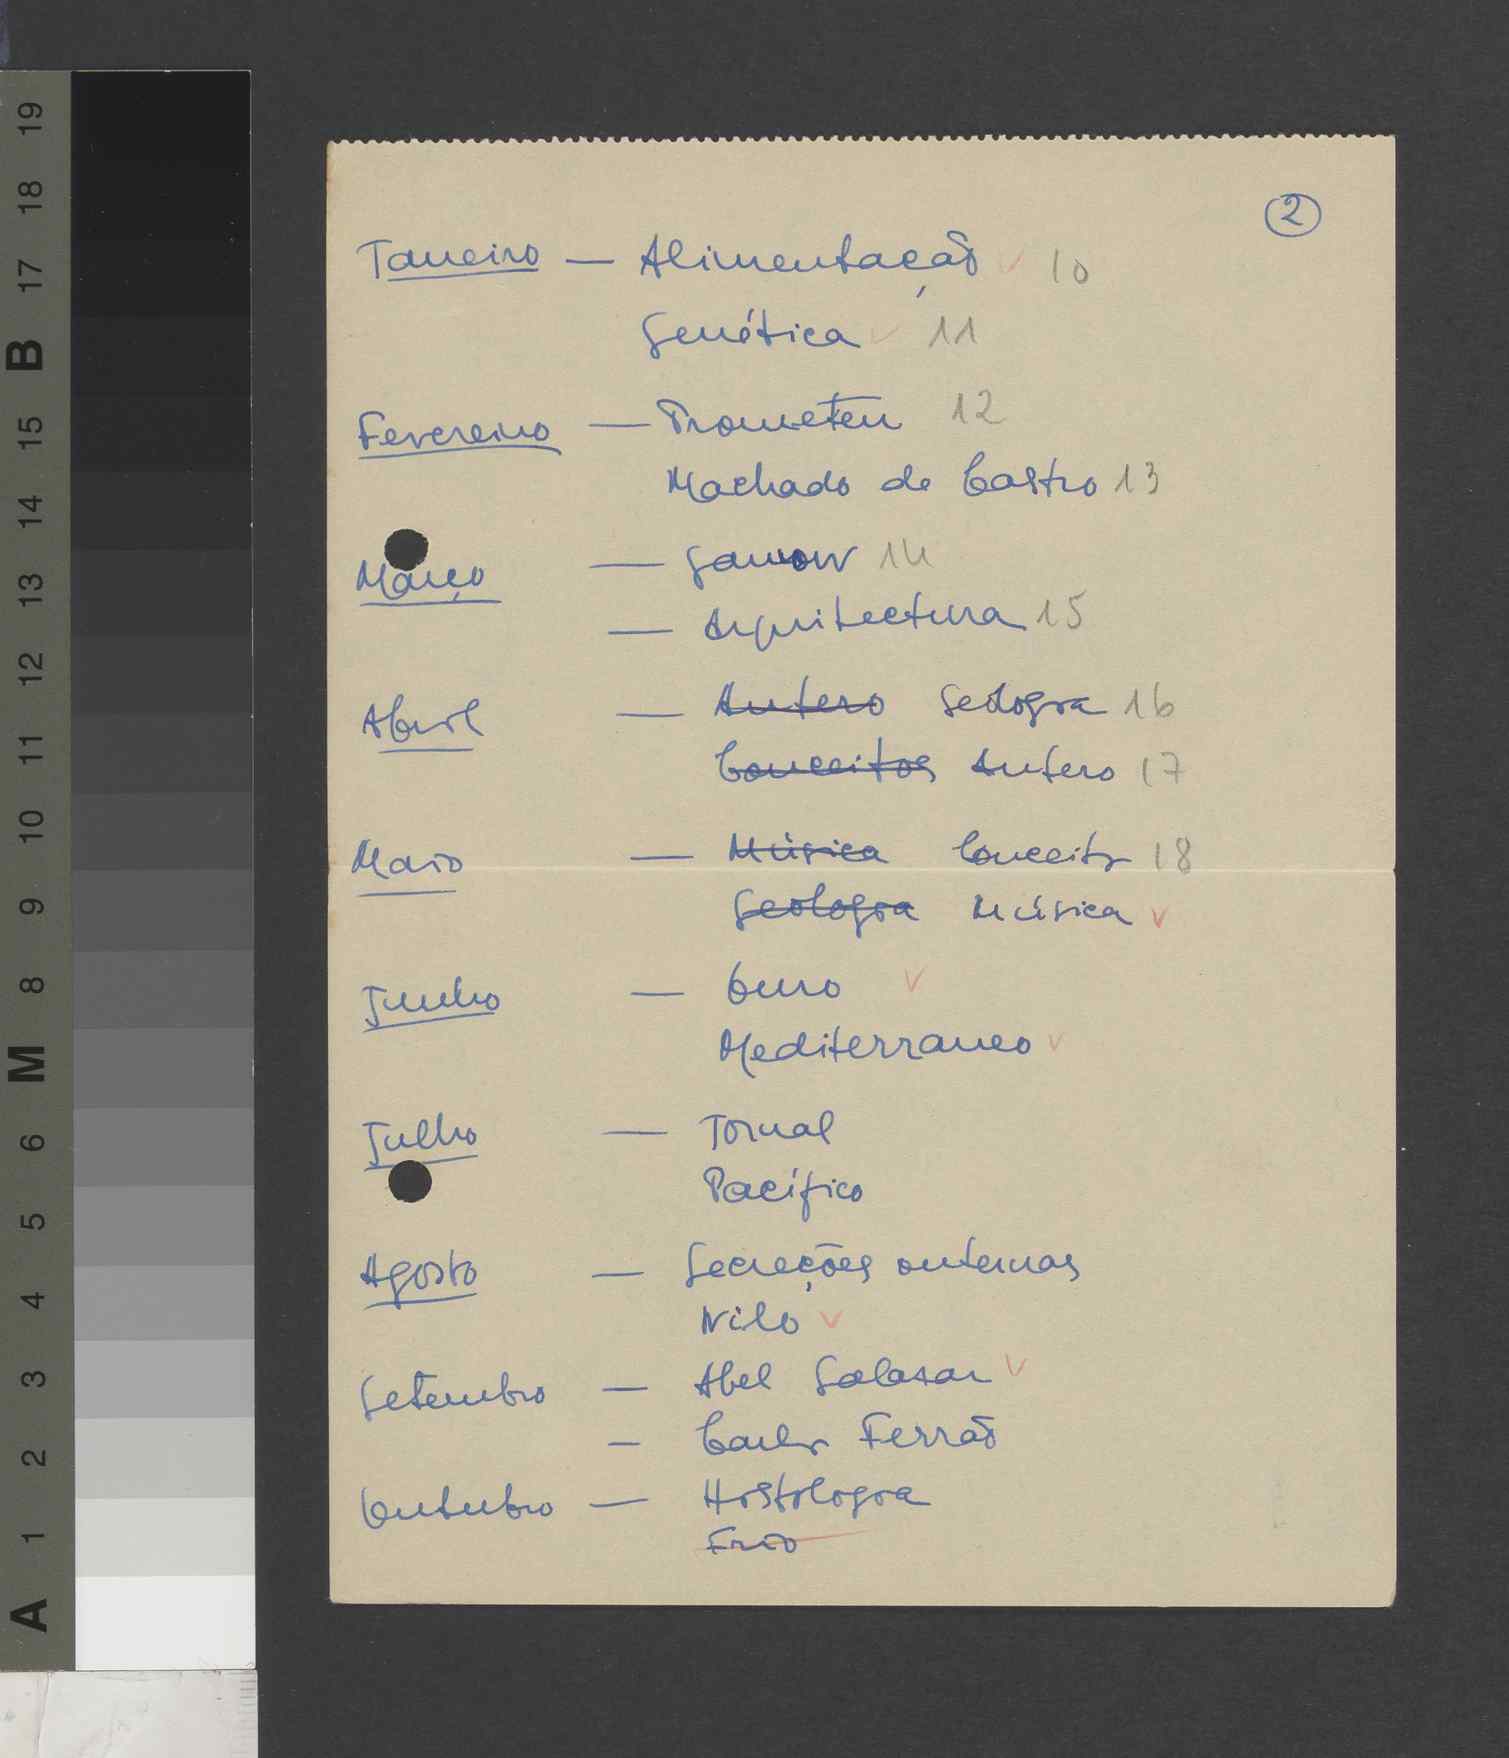 2
Janeiro — Alimentação ✓ 10
Genética ✓ 11
Fevereiro — Prometeu 12
Machado de Castro 13
Março — Gamow 14
— Arquitectura 15
Abril — Antero Geologia 16
Conceitos Antero 17
Maio — Música Conceitos 18
Geologia Música ✓
Junho — Ouro ✓
Mediterraneo ✓
Julho — Jornal
Pacífico
Agosto — Secreções internas
Nilo ✓
Setembro — Abel Salazar ✓
— Carlos Ferrão
Outubro — Histologia
Frio
19
18
17
B
15
14
13
12
11
10
9
8
M
6
5
4
3
2
1
A